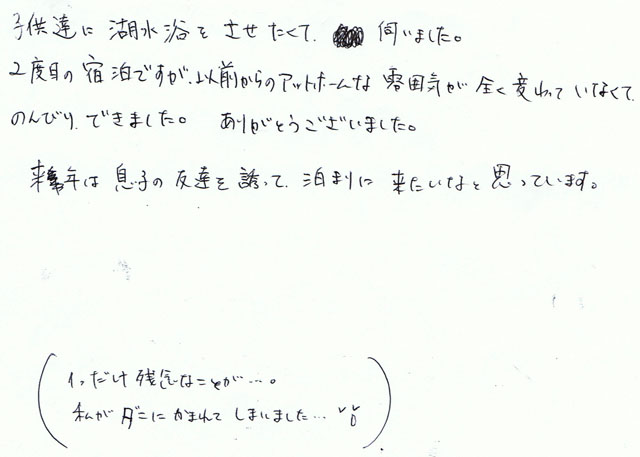 子供達に湖水浴をさせたくて、伺いました。
2度目の宿泊ですが、以前からのアットホームな雰囲気が全く変わっていなくて
のんびりできました。 ありがとうございました。
来年は息子の友達を誘って、泊まりに来たいなと思っています。
1つだけ残念なことが…。
私がダニにかまれてしまいました…